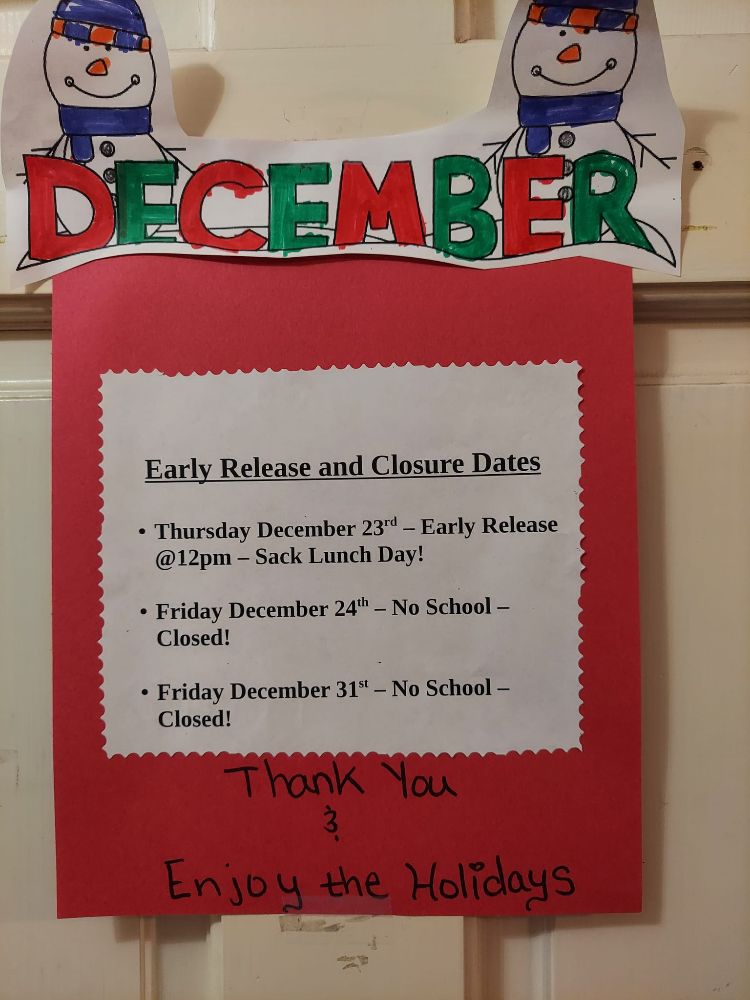 DECEMBER
Early Release and Closure Dates
• Thursday December 23rd – Early Release
@12pm – Sack Lunch Day!
• Friday December 24th – No School –
Closed!
• Friday December 31st – No School –
Closed!
Thank You
&
Enjoy the Holidays